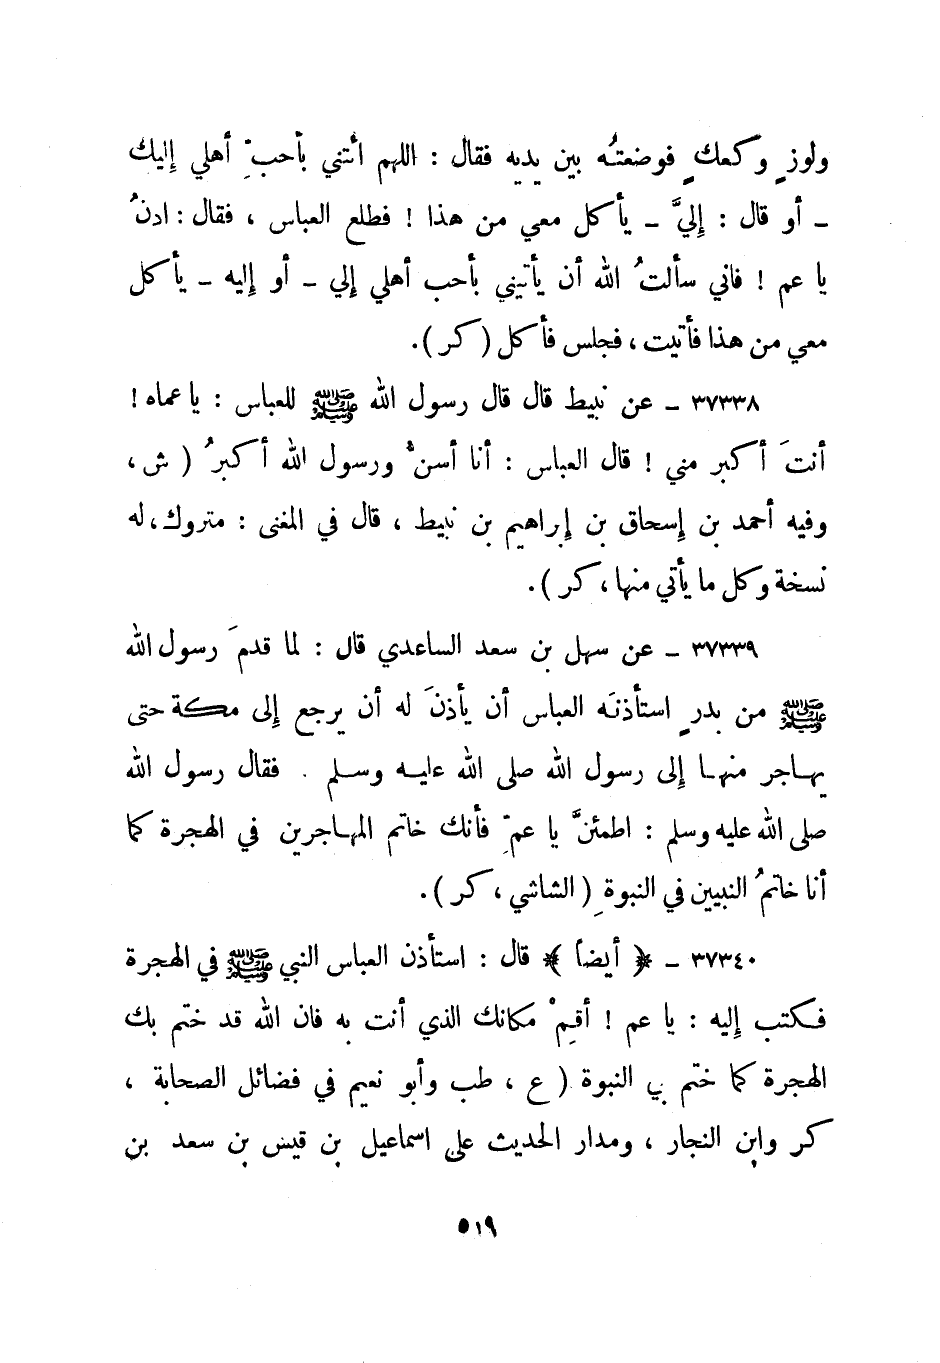 ولوزٍ وكعكٍ فوضعتُه بين يديه فقال : اللهم ائتني بأحبِّ أهلي إليك
ـ أو قال : إليَّ ـ يأكل معي من هذا ! فطلع العباس ، فقال : ادنُ
يا عم ! فاني سألتُ الله أن يأتيني بأحب أهلي إلي ـ أو إليه ـ يأكل
معي من هذا فأتيت ، فجلس فأكل ( كر ) .
٣٧٣٣٨ ـ عن نبيط قال قال رسول الله ﷺ للعباس : يا عماه !
أنتَ أكبر مني ! قال العباس : أنا أسنُّ ورسول الله أكبرُ ( ش ،
وفيه أحمد بن إسحاق بن إبراهيم بن نبيط ، قال في المغنى : متروك ، له
نسخة وكل ما يأتي منها ، كر ) .
٣٧٣٣٩ ـ عن سهل بن سعد الساعدي قال : لما قدمَ رسول الله
ﷺ من بدرٍ استأذنَه العباس أن يأذنَ له أن يرجع إلى مكة حتى
يهاجر منها إلى رسول الله صلى الله عليه وسلم . فقال رسول الله
صلى الله عليه وسلم : اطمئنَّ يا عمِّ فأنك خاتم المهاجرين في الهجرة كما
أنا خاتمُ النبيين في النبوةِ ( الشاشي ، كر ) .
٣٧٣٤٠ ـ ﴿ أيضاً ﴾ قال : استأذن العباس النبي ﷺ في الهجرة
فكتب إليه : يا عم ! أقِمْ مكانك الذي أنت به فان الله قد ختم بك
الهجرة كما ختم بي النبوة ( ع ، طب وأبو نعيم في فضائل الصحابة ،
كر وابن النجار ، ومدار الحديث على اسماعيل بن قيس بن سعد بن
٥١٩